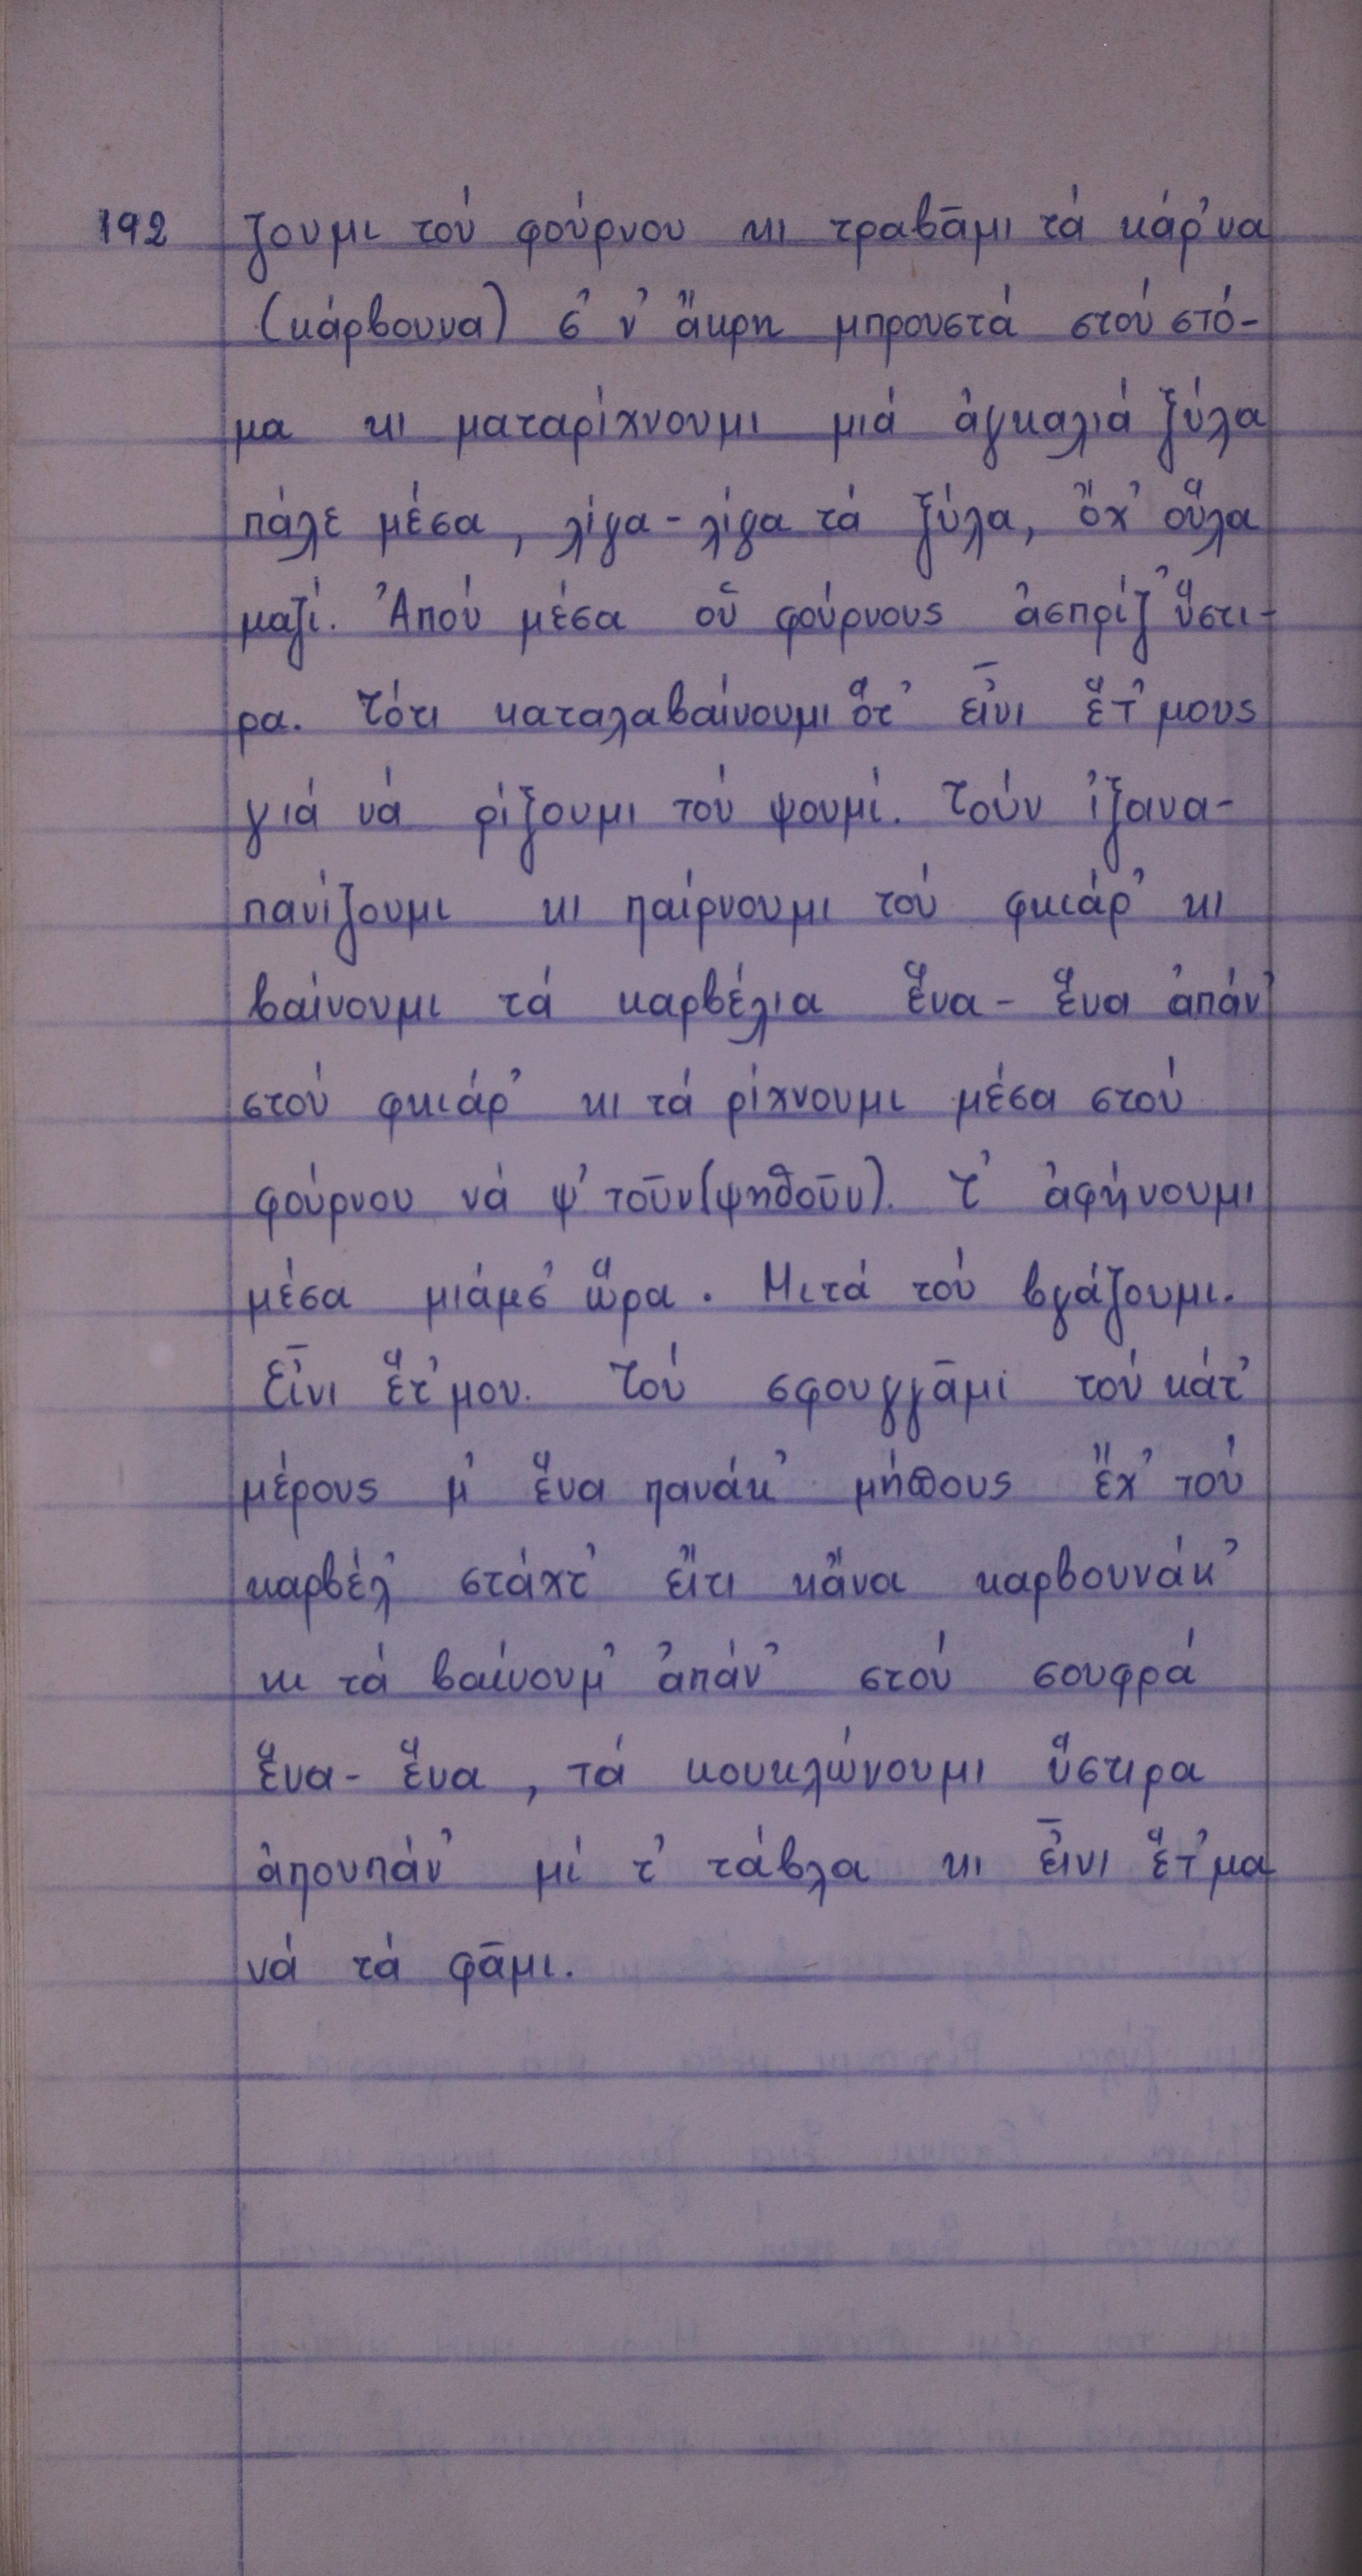 192 ζουμι τού φούρνου κι τραβᾶμι τά κάρ'να
(κάρβουνα) σ' ν' ἄκρη μπρουστά στού στό-
μα κι ματαρίχνουμι μιά ἀγκαλιά ξύλα
πάλε μέσα, λίγα-λίγα τά ξύλα, ὄχ' οὕλα
μαζί. Ἀπού μέσα οὗ φούρνους ἀσπρίζ' ὕστι-
ρα. Τότι καταλαβαίνουμι ὅτ' εἶνι ἕτ'μους
γιά νά ρίξουμι τού ψουμί. Τούν ἰξανα-
πανίζουμι κι παίρνουμι τού φκιάρ' κι
βαίνουμι τά καρβέλια ἕνα-ἕνα ἀπάν'
στού φκιάρ' κι τά ρίχνουμι μέσα στού
φούρνου νά ψ'τοῦν(ψηθοῦν). Τ' ἀφήνουμι
μέσα μιάμσ' ὥρα. Μιτά τού βγάζουμι.
Εἶνι ἕτ'μου. Τού σφουγγᾶμι τού κάτ'
μέρους μ' ἕνα πανάκ' μήπους ἔχ' τού
καρβέλ' στάχτ' εἴτι κἄνα καρβουνάκ'
κι τά βαίνουμ' ἀπάν' στού σουφρά
ἕνα-ἕνα, τά κουκλώνουμι ὕστιρα
ἀπουπάν' μί τ' τάβλα κι εἶνι ἕτ'μα
νά τά φᾶμι.